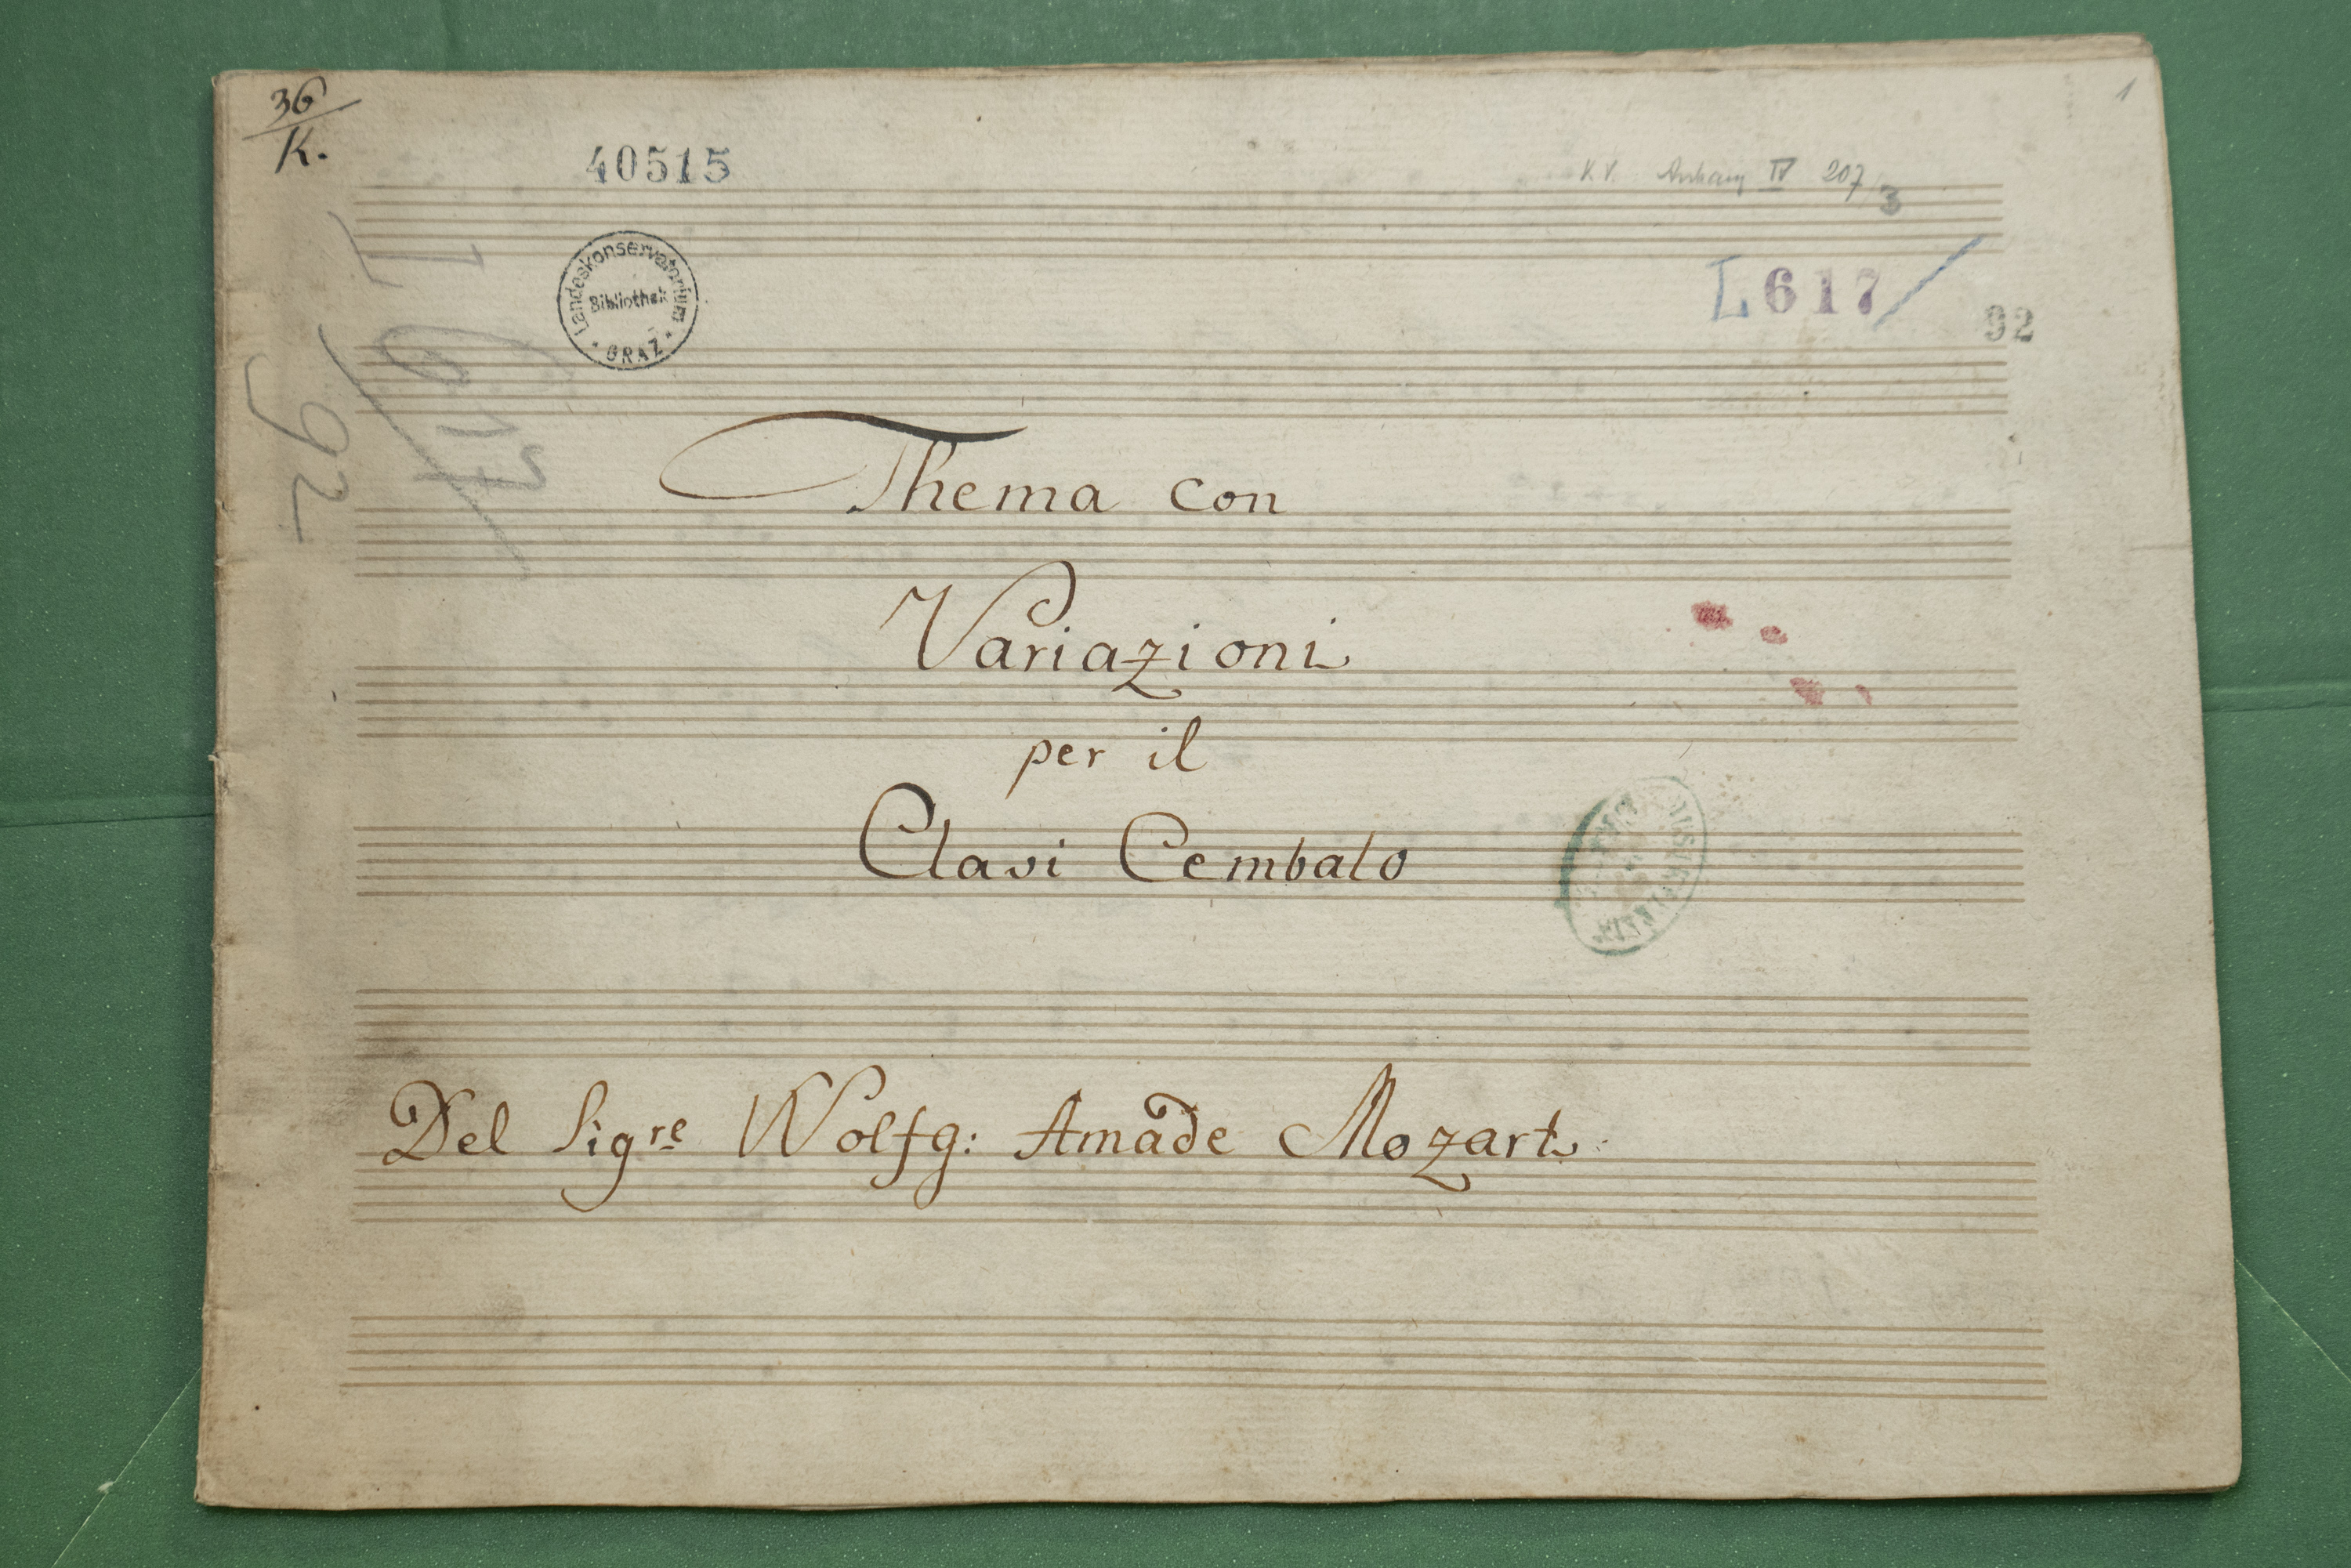 36
K.
1
40515
K.V. Anhang IV 207/3
Landeskonservatorium
Bibliothek
GRAZ
L617/
92
L 617
92
Thema con
Variazioni
per il
Clavi Cembalo
Del Sigre Wolfg: Amade Mozart